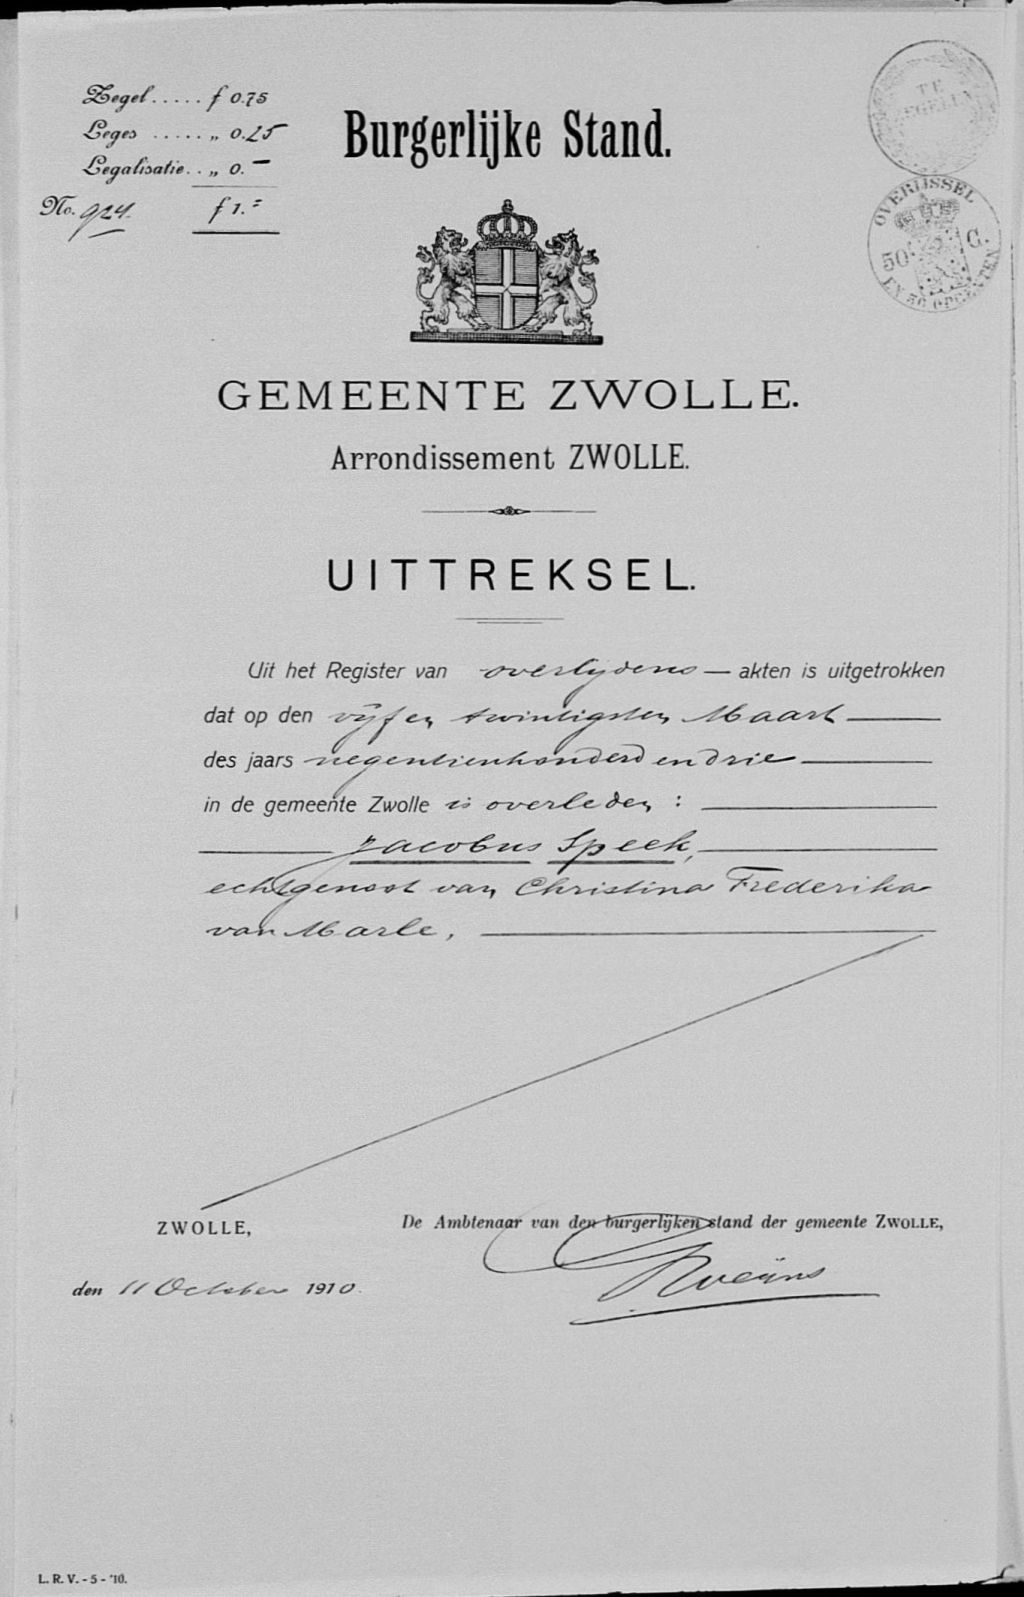 Zegel..... f 0.75
Leges ..... „ 0.25
Legalisatie.. „ 0.—
No. 924. f 1.=
Burgerlijke Stand.
TE
OVERIJSSEL
50 C.
EN 50 OPCENTEN
GEMEENTE ZWOLLE.
Arrondissement ZWOLLE.
UITTREKSEL.
Uit het Register van overlijdens — akten is uitgetrokken
dat op den vijf en twintigsten Maart
des jaars negentienhonderd en drie
in de gemeente Zwolle is overleden :
Jacobus Speek,
echtgenoot van Christina Frederika
van Marle,
ZWOLLE,
De Ambtenaar van den burgerlijken stand der gemeente ZWOLLE,
den 11 October 1910.
L. R. V. - 5 - '10.